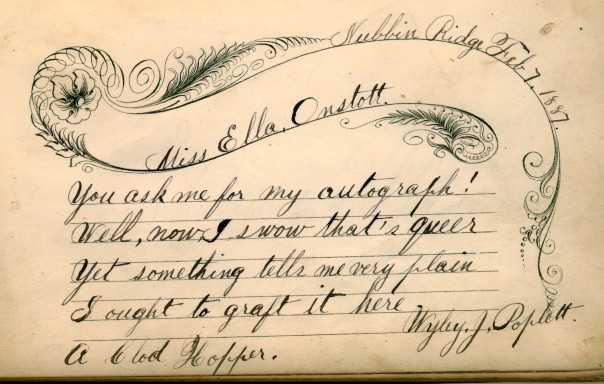 Nubbin Ridge Feb 7, 1887.
Miss Ella, Onstott.
You ask me for my autograph!
Well, now I swow that's queer
Yet something tells me very plain
I ought to graft it here.
Wyley. J. Poplett.
A Clod Hopper.